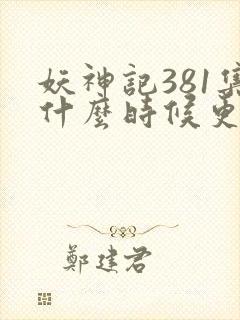 妖神記381集
什麼時候更
鄭建君